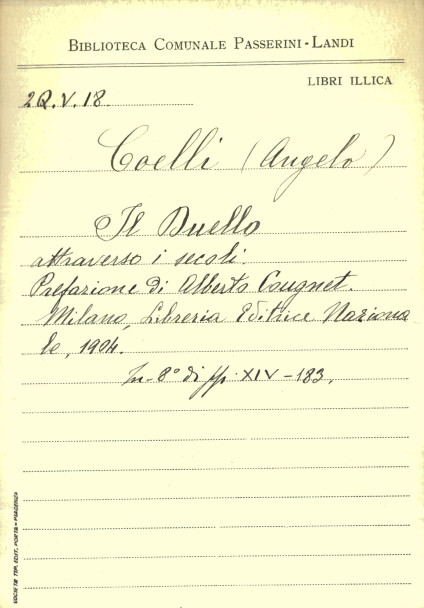 BIBLIOTECA COMUNALE PASSERINI-LANDI
LIBRI ILLICA
2Q.V.18.
Coelli (Angelo)
Il Duello
attraverso i secoli.
Prefazione di Alberto Cougnet.
Milano, Libreria Editrice Naziona
le, 1904.
In-8° di pp. XIV-183.
SOCIETÀ TIP. EDIT. PORTA-PIACENZA